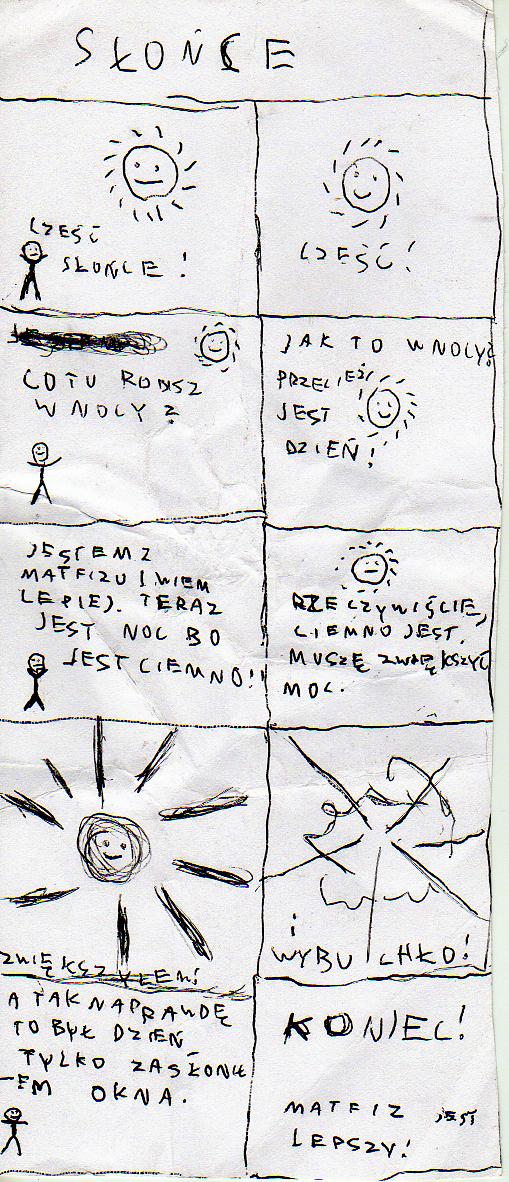 SŁOŃCE
CZEŚĆ
SŁOŃCE!
CZEŚĆ!
CO TU ROBISZ
W NOCY?
JAK TO W NOCY?
PRZECIEŻ
JEST
DZIEŃ!
JESTEM Z
MATFIZU I WIEM
LEPIEJ. TERAZ
JEST NOC BO
JEST CIEMNO!
RZECZYWIŚCIE,
CIEMNO JEST.
MUSZĘ ZWIĘKSZYĆ
MOC.
ZWIĘKSZYŁEM!
I
WYBUCHŁO!
A TAK NAPRAWDĘ
TO BYŁ DZIEŃ
TYLKO ZASŁONIŁ
-EM OKNA.
KONIEC!
MATFIZ JEST
LEPSZY!